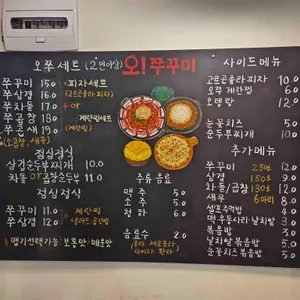 오쭈 세트 (2인이상)
쭈꾸미 15.0
쭈삼겹 16.0
쭈차돌 17.0
쭈곱창 18.0
쭈곱새 19.0
(소곱창, 새우)
*피자세트
(고르곤졸라 피자)
or
*계란찜세트
(계란찜)
점심정식
삼겹순두부찌개 10.0
차돌 or 곱창순두부 11.0
점심정식
쭈꾸미 11.0
쭈삼겹 12.0
+ 계란찜
*맵기선택가능: 보통맛·매운맛
오! 쭈꾸미
주류 음료
맥주 5.0
소주 5.0
청하 6.0
음료수 2.0
사이드메뉴
고르곤졸라피자 10.0
오쭈 계란찜 6.0
오뎅탕 12.0
눈꽃치즈 5.0
순두부찌개 10.0
추가메뉴
쭈꾸미 12.0
삼겹 150g 8.0
차돌/곱창 130g 12.0
새우 6마리 8.0
셀프주먹밥
떡·우동사리/날치알 3.0
볶음밥 3.0
날치알볶음밥 5.0
눈꽃치즈볶음밥 5.0